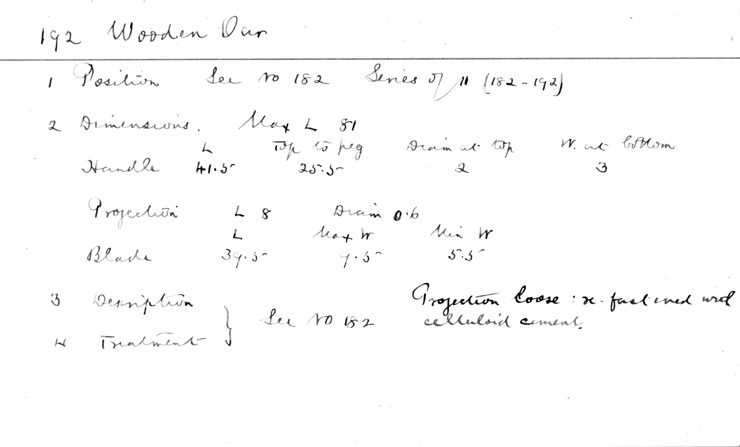 192 Wooden Oar
1 Position See No 182 Series of 11 (182-192)
2 Dimensions. Max L 81
L Top to peg Diam at top W. at bottom
Handle 41.5 25.5 2 3
Projection L 8 Diam 0.6
L Max W Min W
Blade 39.5 9.5 5.5
3 Description Projection loose: re-fastened with
See No 182 celluloid cement.
4 Treatment